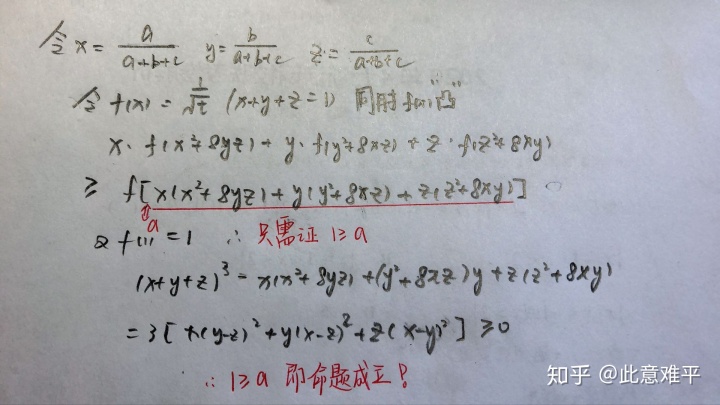 令 x = a/(a+b+c) y = b/(a+b+c) z = c/(a+b+c)
令 f(x) = 1/√t (x+y+z=1) 同时 f(x)"凸"
x·f(x²+8yz)+y·f(y²+8xz)+z·f(z²+8xy)
≥ f[x(x²+8yz)+y(y²+8xz)+z(z²+8xy)]
a
又 f(1)=1 ∴ 只需证 1≥a
(x+y+z)³-x(x²+8yz)+(y²+8xz)y+z(z²+8xy)
=3[x(y-z)²+y(x-z)²+z(x-y)²]≥0
∴ 1≥a 即命题成立!
知乎 @此意难平